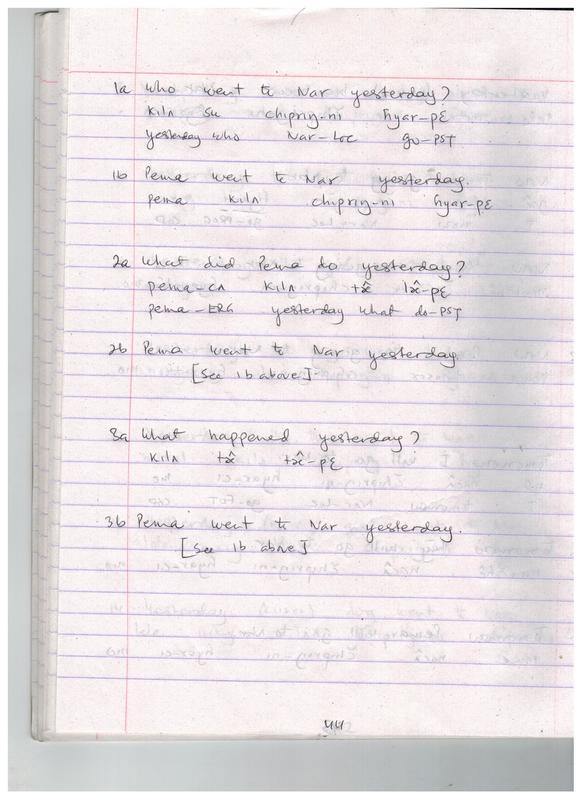 1a Who went to Nar yesterday?
kilʌ su chipriŋ-ni ɦyar-pɛ
yesterday who Nar-LOC go-PST
1b Pema went to Nar yesterday.
pema kilʌ chipriŋ-ni ɦyar-pɛ
2a What did Pema do yesterday?
pema-cʌ kilʌ
pema-ERG yesterday what do-PST
2b Pema went to Nar yesterday
[See 1b above]
3a What happened yesterday?
kilʌ
3b Pema went to Nar yesterday.
[See 1b above]
44